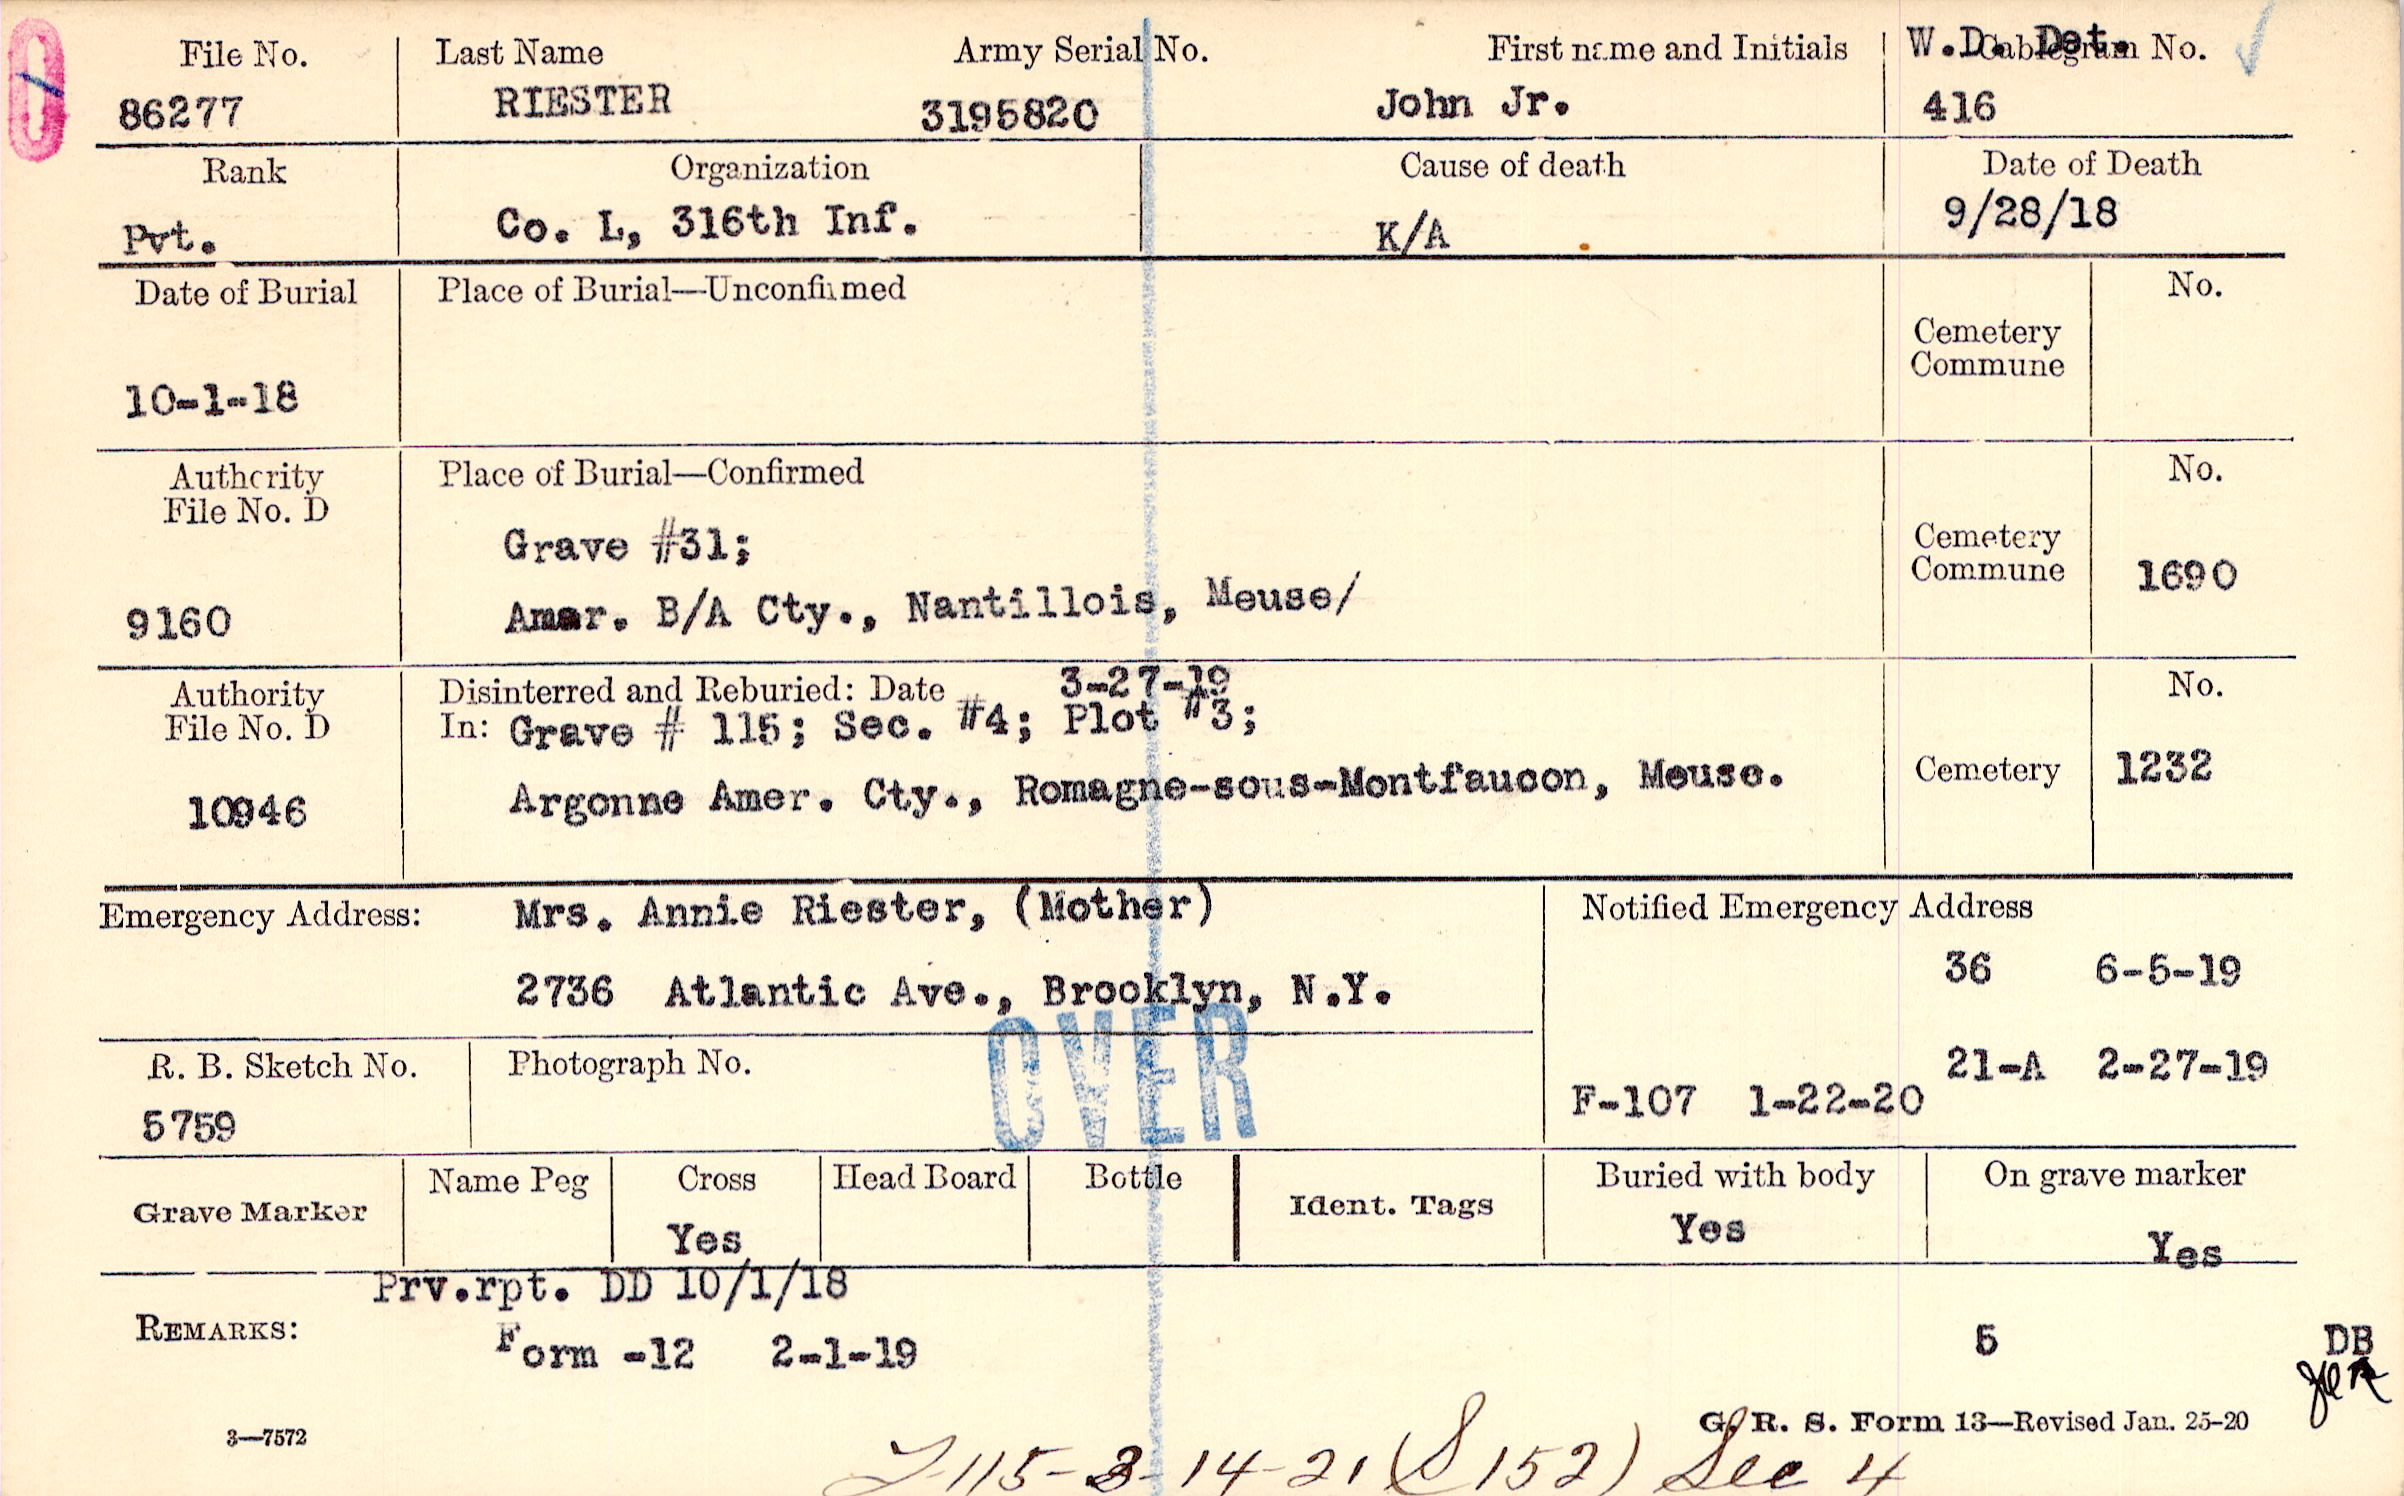 File No. Last Name Army Serial No. First name and Initials W.D. Det. Cablegram No.
86277 RIESTER 3195820 John Jr. 416
Rank Organization Cause of death Date of Death
Pvt. Co. L, 316th Inf. K/A 9/28/18
Date of Burial Place of Burial—Unconfirmed No.
Cemetery
Commune
10-1-18
Authority Place of Burial—Confirmed No.
File No. D
Grave #31; Cemetery
Commune 1690
9160 Amer. B/A Cty., Nantillois, Meuse/
Authority Disinterred and Reburied: Date 3-27-19 No.
File No. D In: Grave # 115; Sec. #4; Plot #3;
10946 Argonne Amer. Cty., Romagne-sous-Montfaucon, Meuse. Cemetery 1232
Emergency Address: Mrs. Annie Riester, (Mother) Notified Emergency Address
36 6-5-19
2736 Atlantic Ave., Brooklyn, N.Y.
OVER
R. B. Sketch No. Photograph No. 21-A 2-27-19
5759 F-107 1-22-20
Grave Marker Name Peg Cross Head Board Bottle Ident. Tags Buried with body On grave marker
Yes Yes Yes
Prv.rpt. DD 10/1/18
REMARKS: Form -12 2-1-19 5 DB
G. R. S. Form 13—Revised Jan. 25-20
3—7572
115-3-14-21 (S 152) Sec 4